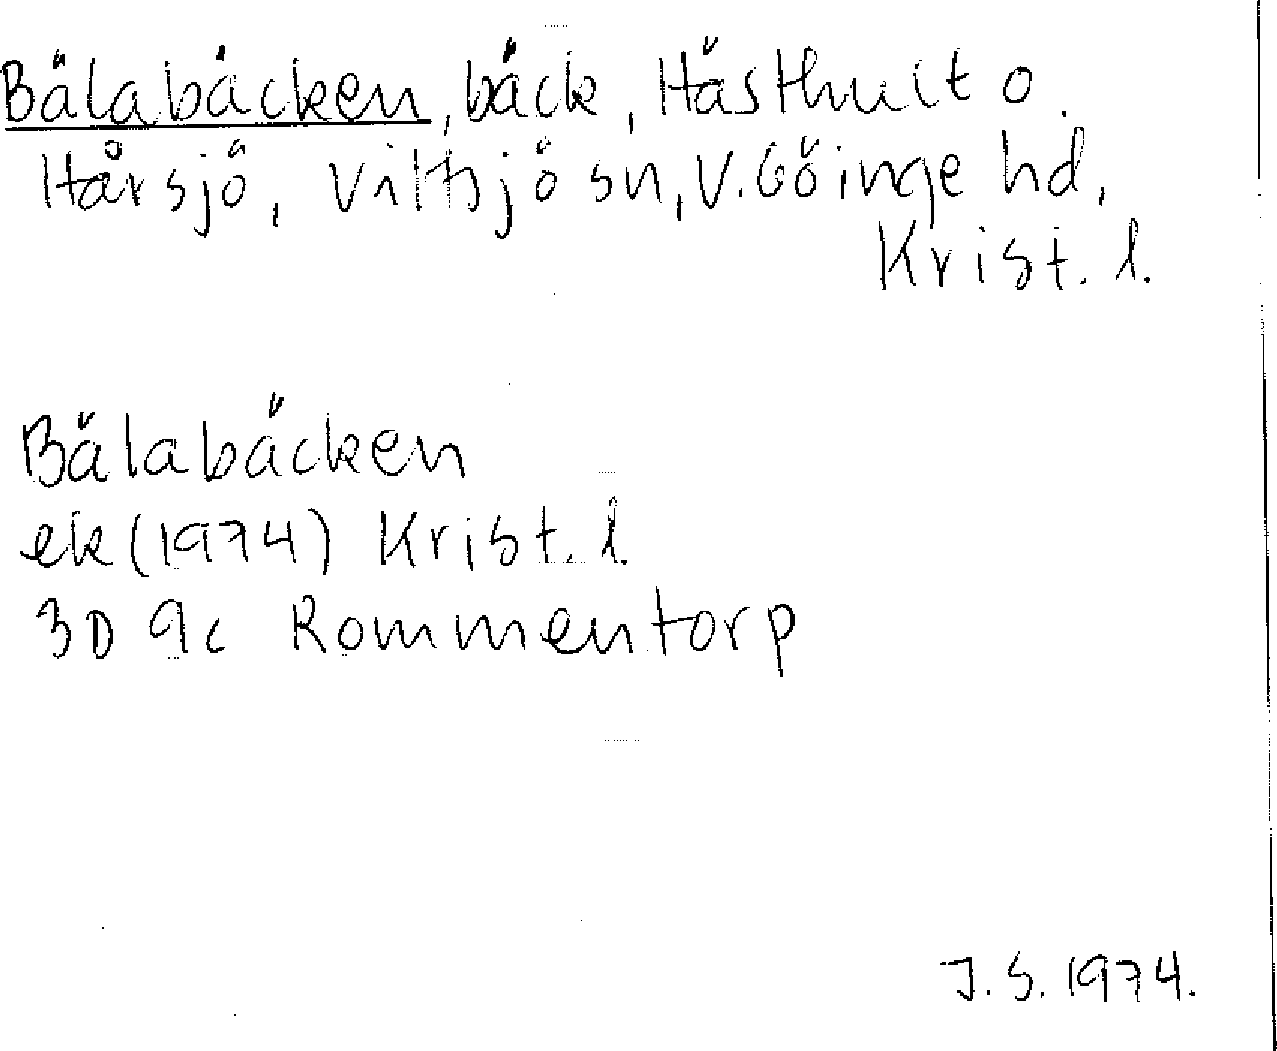 Bälabäcken, bäck, Hästhult o.
Hårsjö, Vittsjö sn, V. Göinge hd,
Krist. l.
Bälabäcken
ek (1974) Krist. l.
3D 9c Rommentorp
J.S. 1974.